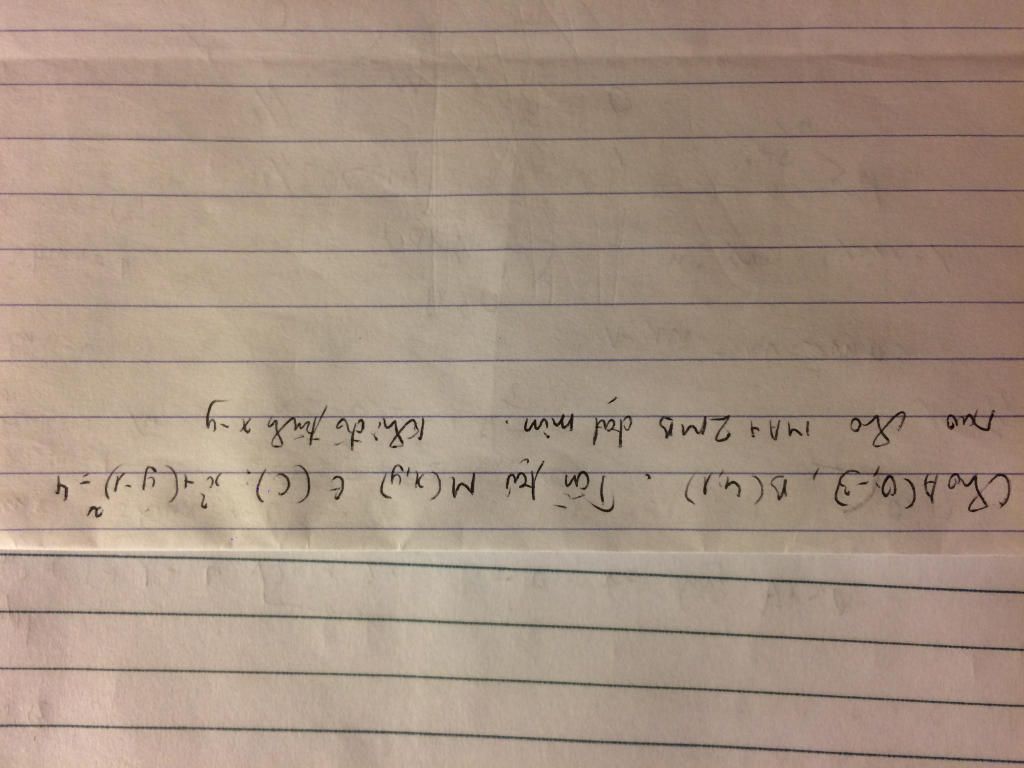 Cho A(0;-3), B(4,1). Tồn tại M(x,y) ∈ (C): x²+(y-1)²=4
sao cho MA+2MB đạt min. Khi đó tính x-y